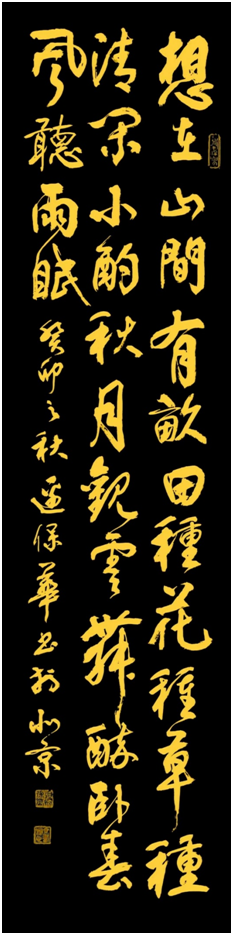 想在山間有畝田種花種草種
清閑小酌秋月觀雲舞醉卧春
風聽雨眠
癸卯之秋保華书於北京